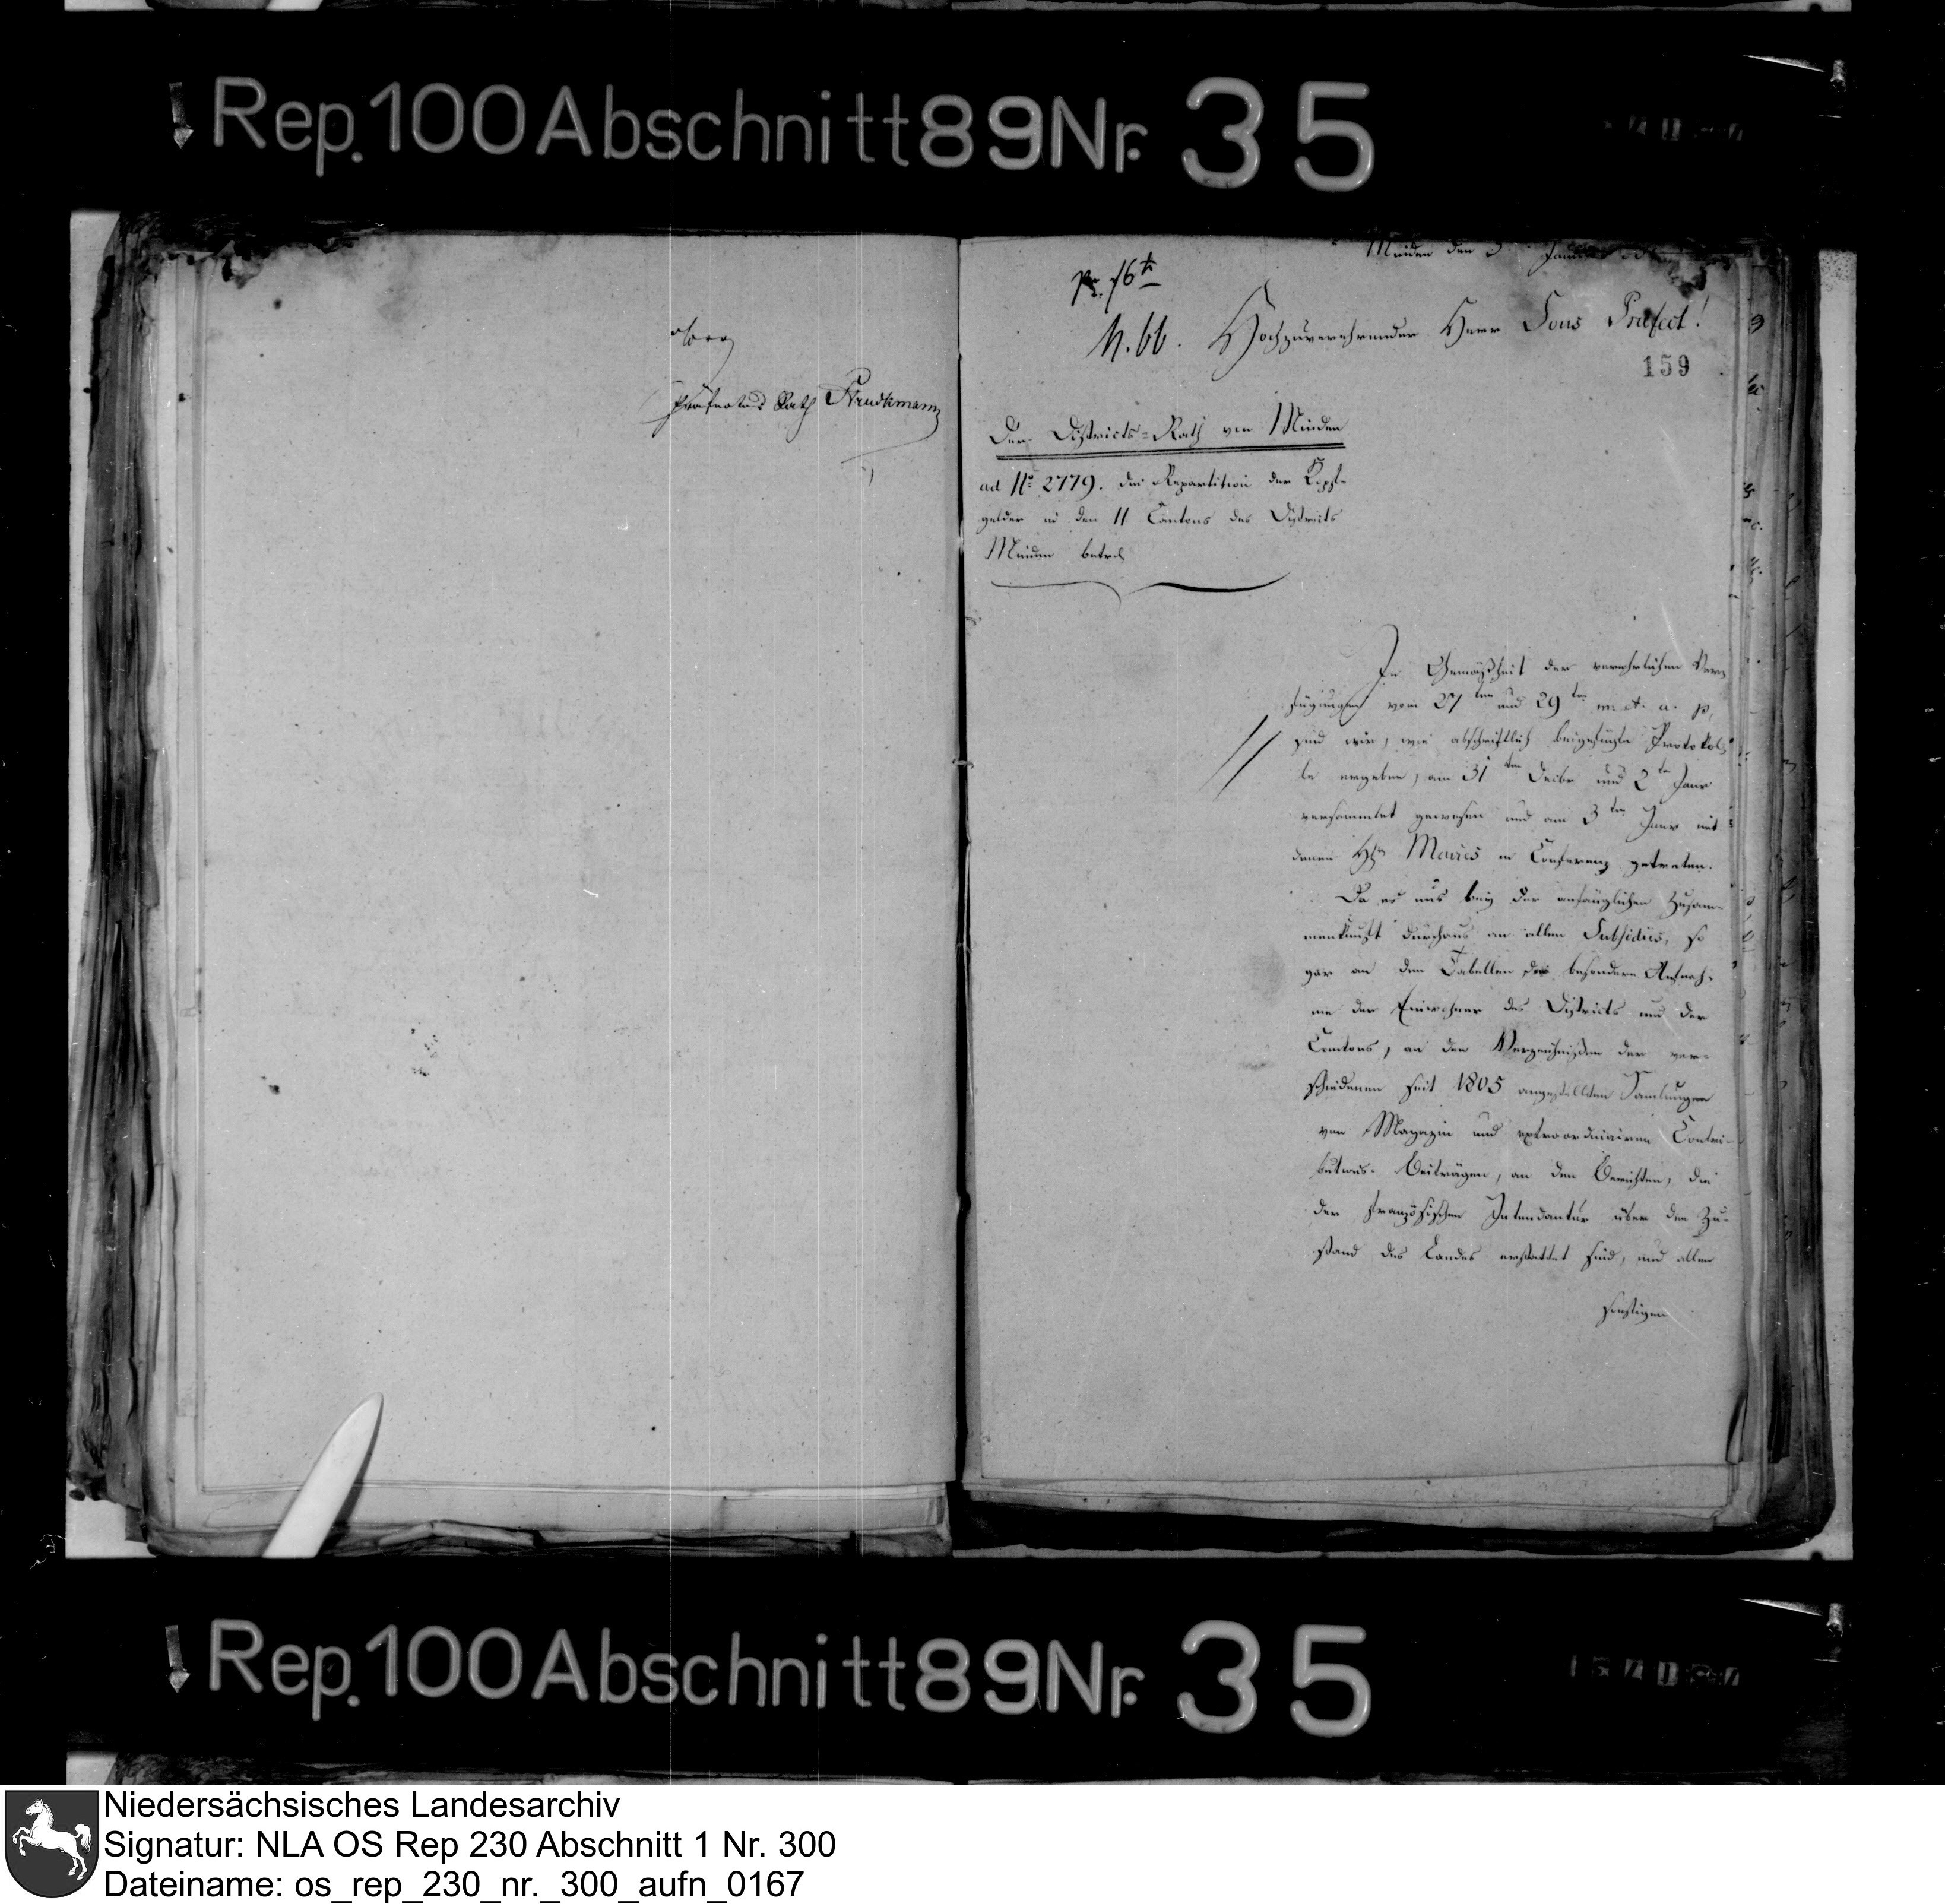 Rep. 100 Abschnitt 89 Nr. 35
Präfectur Rath Struckmann
Minden den 3 Januar
pr. 16t
N. 66. Hochzuverehrender Herr Sous Präfect!
159
Der Districts-Rath von Minden
ad No. 2779. die Repartition der Kopf-
gelder in den 11 Cantons des Districts
Minden betrd
In Gemäßheit der verehrlichen Ver-
fügungen vom 27ten und 29ten m. et. a. p.
sind wir, wie abschriftlich beigefügte Protokol-
le ergeben, am 31ten Decbr und 2ten Janr
versammlet gewesen und am 3ten Janr mit
denen HH Maires in Conferenz getreten.
Da es uns bey der anfänglichen Zusam-
menkunft durchaus an allen Subsidiis, so
gar an den Tabellen der besondern Aufnah-
me der Einwohner des Districts und der
Cantons, an den Verzeichnißen der ver-
schiedenen seit 1805 angestellten Samlungen
von Magazin und extraordinairen Contri-
butions-Beiträgen, an den Berichten, die
der französischen Intendantur über den Zu-
stand des Landes erstattet sind, und allen
sonstigen
Rep. 100 Abschnitt 89 Nr. 35
Niedersächsisches Landesarchiv
Signatur: NLA OS Rep 230 Abschnitt 1 Nr. 300
Dateiname: os_rep_230_nr._300_aufn_0167